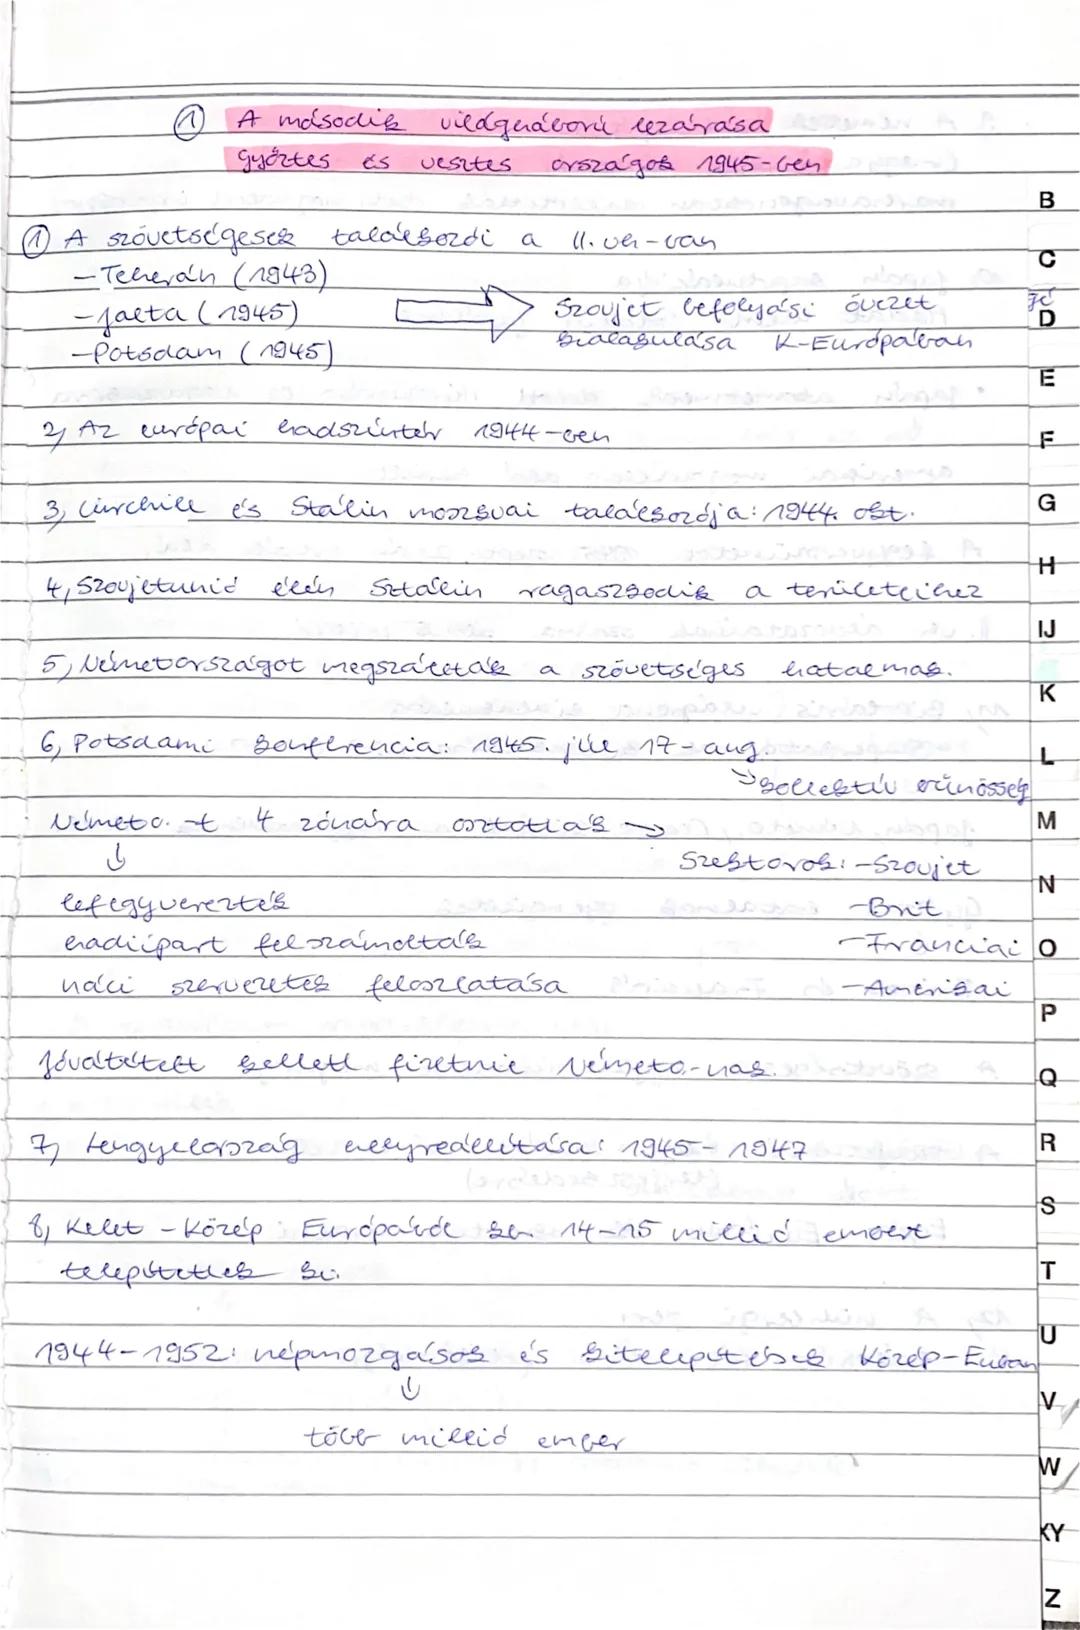 ① A második világháború lezárása
Győztes és vesztes országok 1945-ben
① A szövetségesek találkozói a II. vh-ban
- Teherán (1943)
- Jalta (1945)
- Potsdam (1945)
Szovjet befolyási övezet
kialakulása K-Európában
2, Az európai hadszíntér 1944-ben
3, Curchill és Stálin moszkvai találkozója: 1944. okt.
4, Szovjetunió élén Sztálin ragaszkodik a területeihez
5, Németországot megszállták a szövetséges hatalmak.
6, Potsdami konferencia: 1945. júl 17 - aug.
→ kollektív bűnösség
Németo.-t 4 zónára osztották →
↓
Szektorok: - Szovjet
lefegyverezték
- Brit
hadiipart felszámolták
- Franciai
náci szervezetek feloszlatása
- Amerikai
Jóvátételt kellett fizetnie Németo.-nak.
7, Lengyelország helyreállítása: 1945 - 1947
8, Kelet - Közép Európából kb. 14-15 millió embert
telepítettek ki.
1944-1952: népmozgások és kitelepítések Közép-Euban
↓
több millió ember
B
C
D
E
F
G
H
IJ
K
L
M
N
O
P
Q
R
S
T
U
V
W
XY
Z